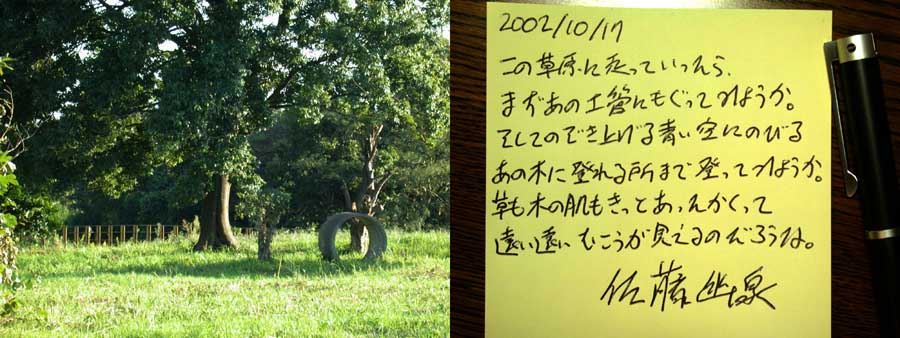 2002/10/17
この草原に走っていったら、
まずあの土管にもぐってみようか。
そしてのどき上げる青い空にのびる
あの木に登れる所まで登ってみようか。
草も木の肌もきっとあったかくって
遠い遠いむこうが見えるのだろうな。
佐藤